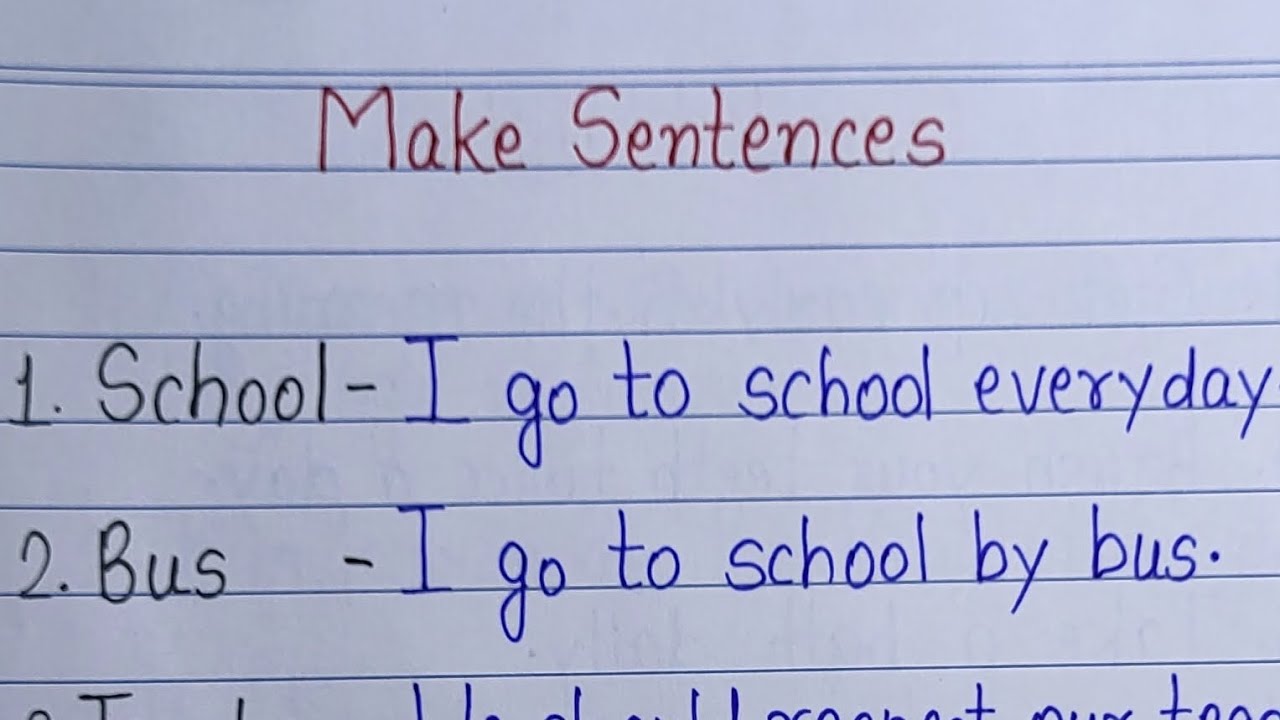 Make Sentences
1. School - I go to school everyday
2. Bus - I go to school by bus.